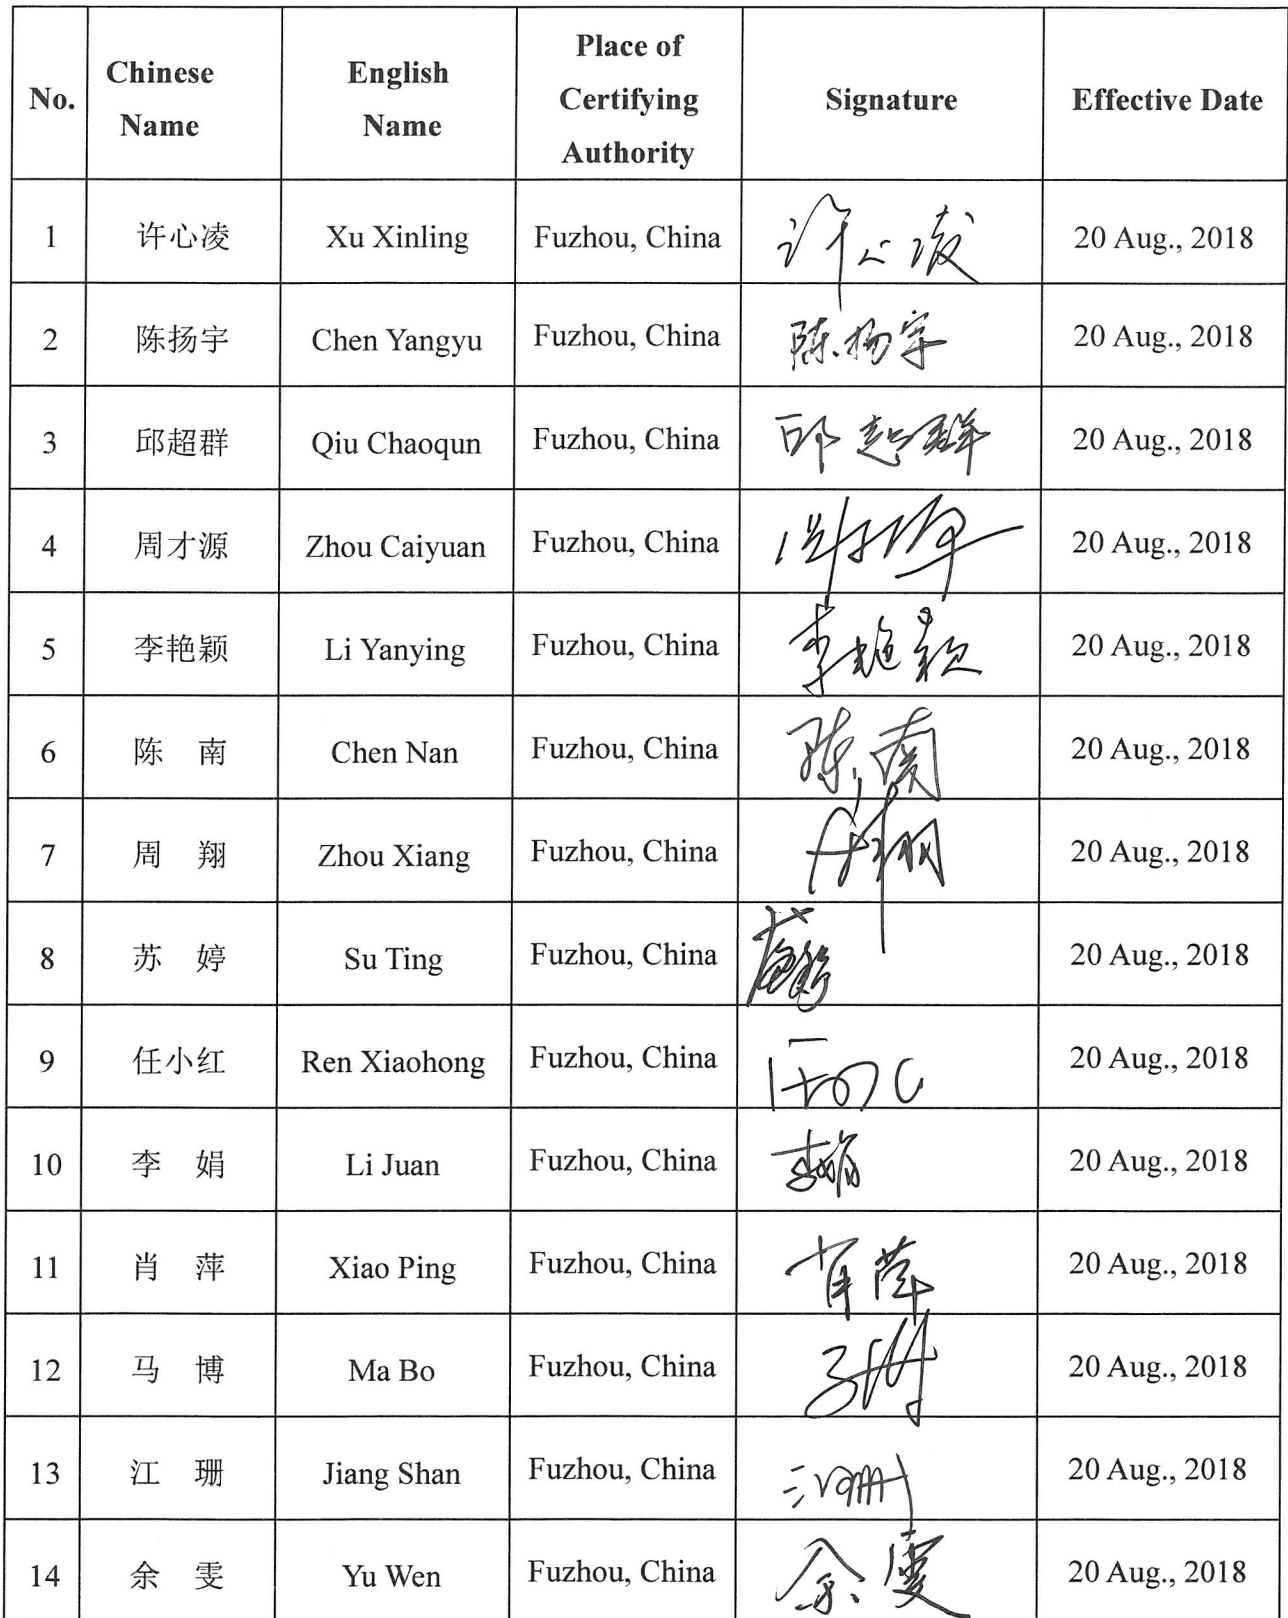 No. Chinese Name English Name Place of Certifying Authority Signature Effective Date
1 许心凌 Xu Xinling Fuzhou, China 许心凌 20 Aug., 2018
2 陈扬宇 Chen Yangyu Fuzhou, China 陈扬宇 20 Aug., 2018
3 邱超群 Qiu Chaoqun Fuzhou, China 邱超群 20 Aug., 2018
4 周才源 Zhou Caiyuan Fuzhou, China 20 Aug., 2018
5 李艳颖 Li Yanying Fuzhou, China 李艳颖 20 Aug., 2018
6 陈 南 Chen Nan Fuzhou, China 陈南 20 Aug., 2018
7 周 翔 Zhou Xiang Fuzhou, China 20 Aug., 2018
8 苏 婷 Su Ting Fuzhou, China 20 Aug., 2018
9 任小红 Ren Xiaohong Fuzhou, China 20 Aug., 2018
10 李 娟 Li Juan Fuzhou, China 李娟 20 Aug., 2018
11 肖 萍 Xiao Ping Fuzhou, China 肖萍 20 Aug., 2018
12 马 博 Ma Bo Fuzhou, China 马博 20 Aug., 2018
13 江 珊 Jiang Shan Fuzhou, China 江珊 20 Aug., 2018
14 余 雯 Yu Wen Fuzhou, China 余雯 20 Aug., 2018